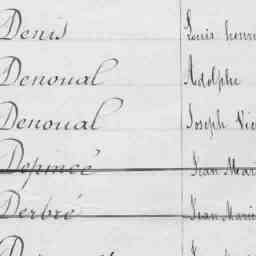 Denis Louis henri
Denoual Adolphe
Denoual Joseph Vic
Depincé Jean Mari
Derbré Jean Marie